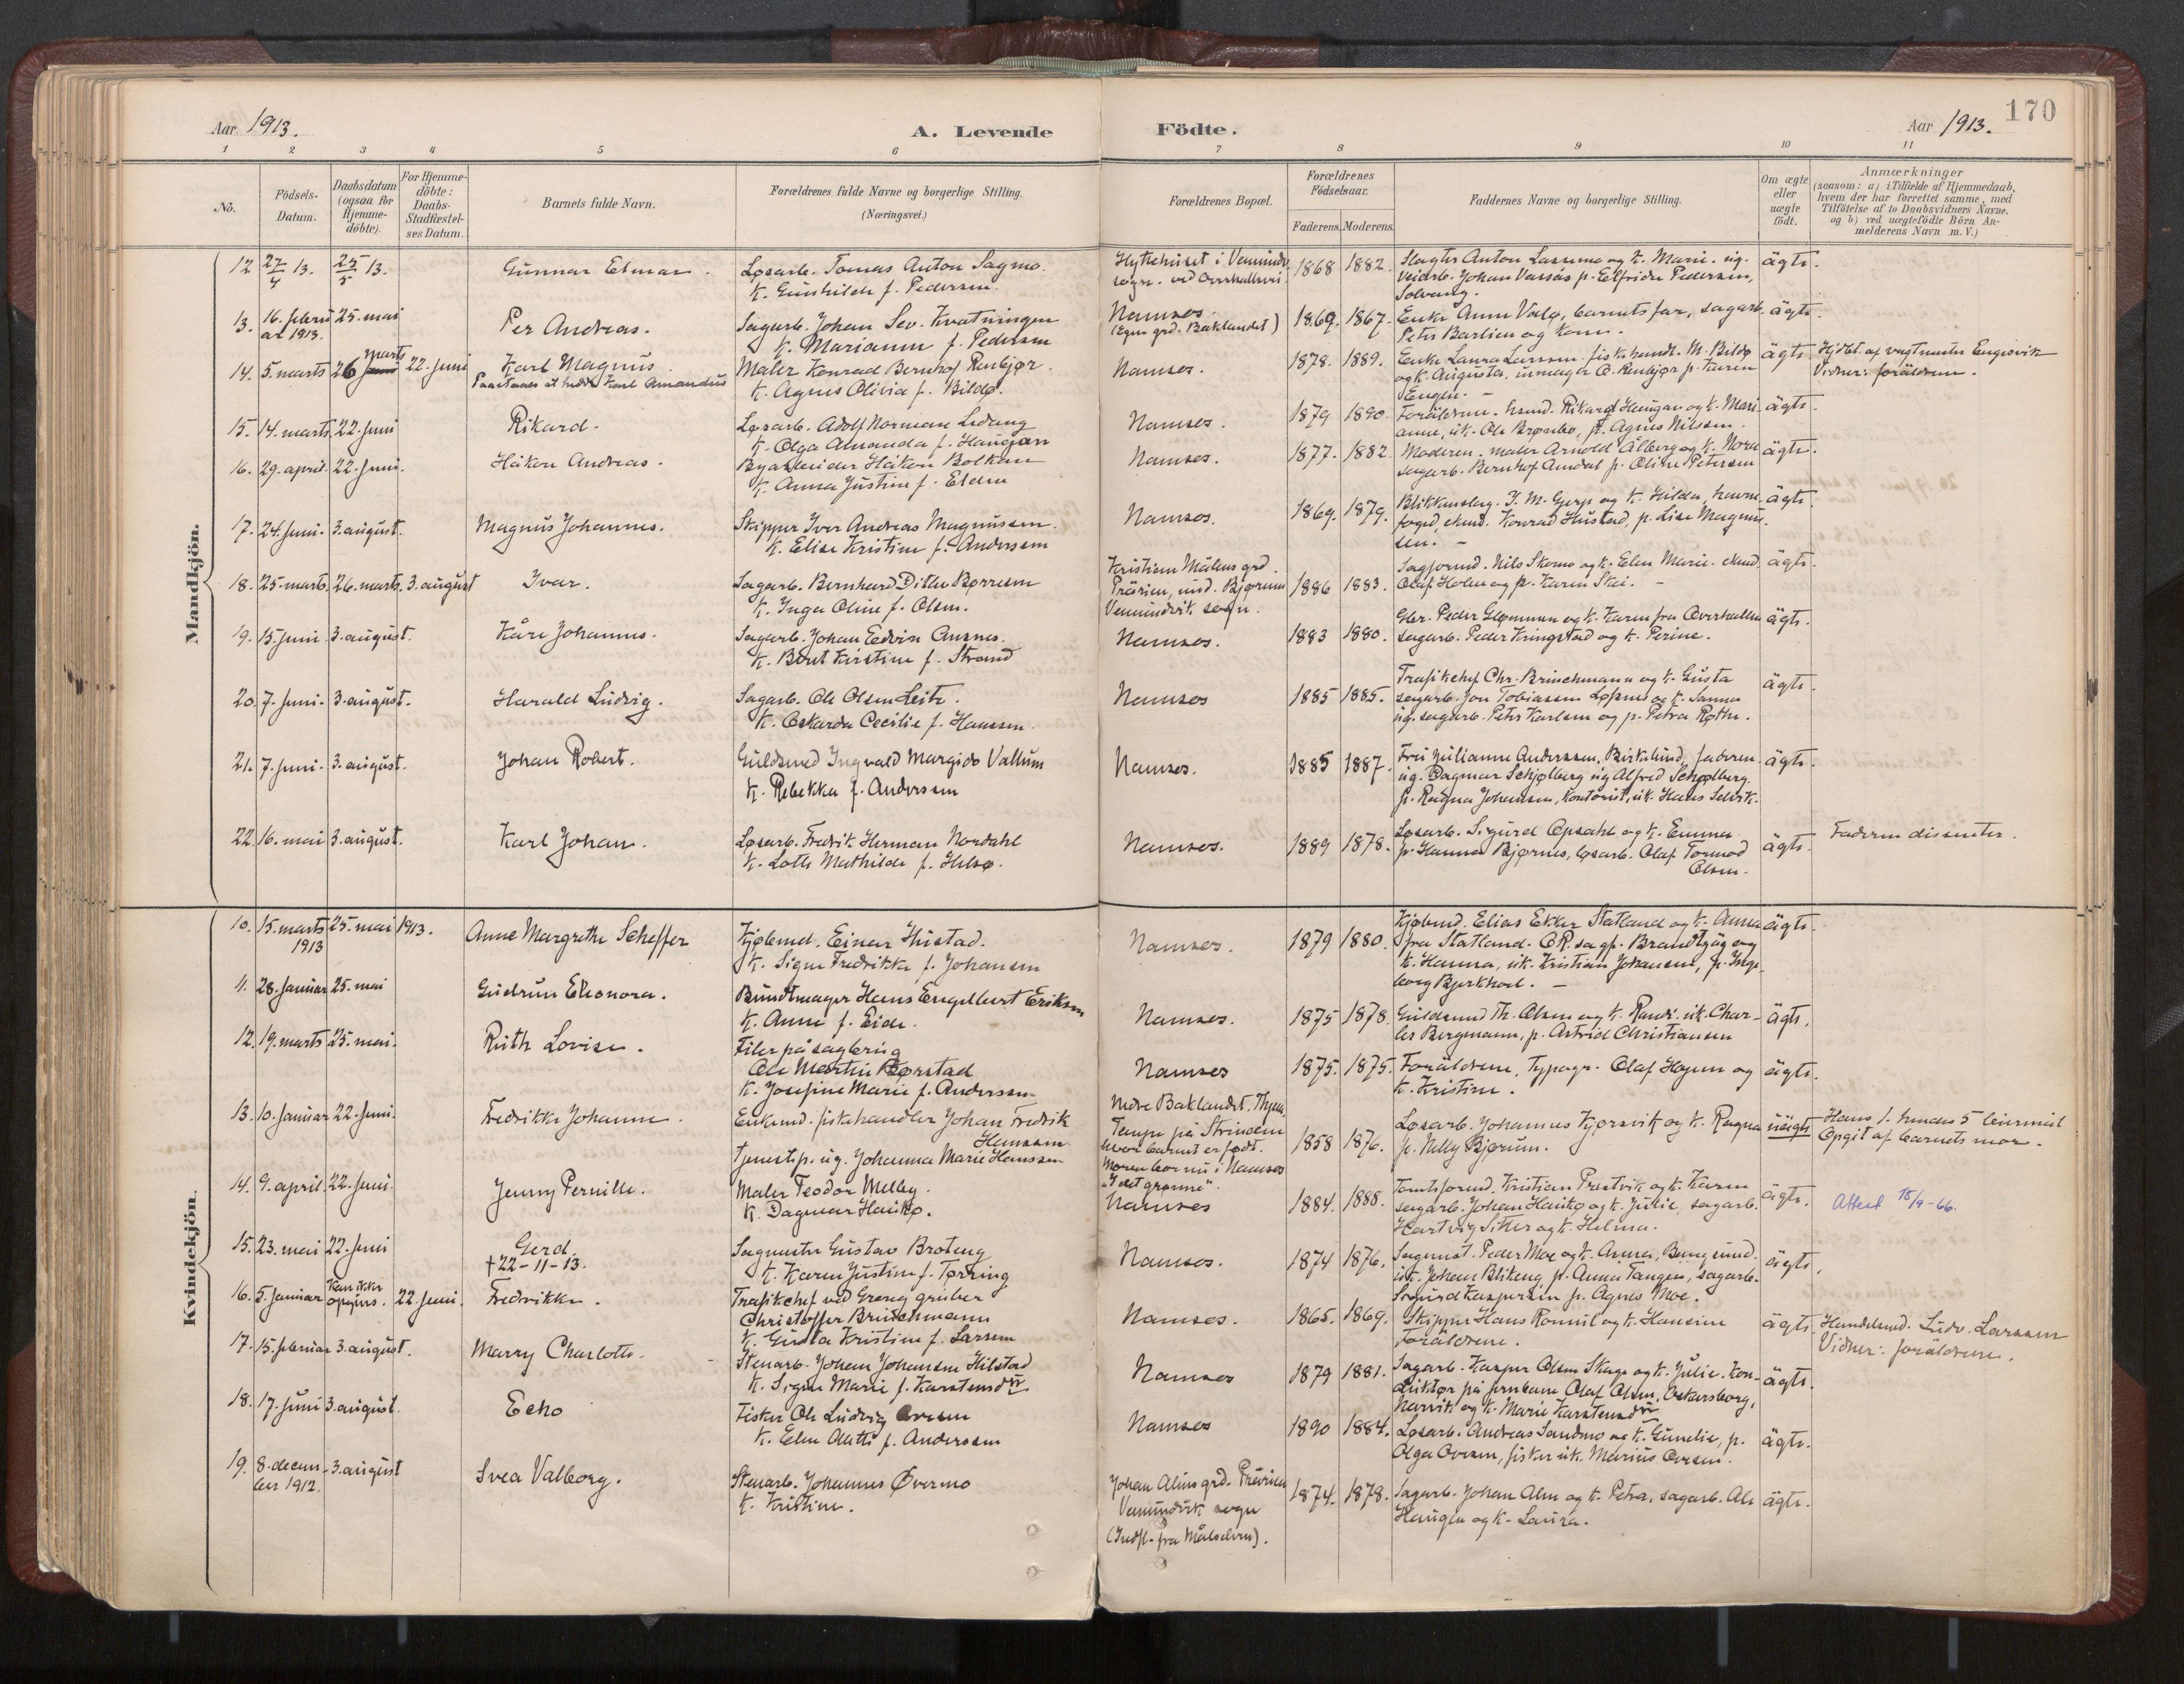 Aar 1913.
A. Levende
Födte.
Aar 1913.
170
1 2 3 4 5 6 7 8 9 10 11
No.
Födsels-Datum.
Daabsdatum (ogsaa for Hjemme-döbte).
For Hjemme-döbte: Daabs-Stadfæstel-ses Datum.
Barnets fulde Navn.
Forældrenes fulde Navne og borgerlige Stilling.
(Næringsvei.)
Forældrenes Bopæl.
Forældrenes Födselsaar.
Faderens. Moderens.
Faddernes Navne og borgerlige Stilling.
Om ægte eller uægte födt.
Anmærkninger
(saasom: a) i Tilfælde af Hjemmedaab, hvem der har forrettet samme, med Tilföielse af to Daabsvidners Navne, og b) ved uægtefödte Börn An-melderens Navn m. V.)
Mandkjön.
12 27/4 13. 25/5 13. Gunnar Elmar. Løsarb. Tomas Anton Sagmo.
K. Gunhilde f. Pedersen.
1868 1882. Slagter Anton Lassemo og k. Marie. ug.
veiarb. Johan Vassås p. Elfride Pedersen,
Solvang. ägte.
13. 16. februar 1913. 25. mai Per Andreas. Sagarb. Johan Sev. Kvatningen
K. Marianne f. Pedersen
Namsos.
(Egen grd. Baklandet)
1869. 1867. Enke Anne Valø, barnets far, sagarb.
Peter Barlien og kone. ägte.
14. 5. marts 26 marts 22. juni Karl Magnus.
Paastaaes at hedde Karl Amandus
Maler Konrad Bernhof Renbjør.
K. Agnes Olivia f. Bildø.
Namsos. 1878. 1889. Enke Laura Larssen. fiskehandl. M. Bildø
og k. Augusta, urmager O. Renbjør p. Karen
Engen. ägte. Hjdbt. af vagtmester Engesvik
Vidner: foräldrene.
15. 14. marts 22. juni Rikard. Løsarb. Adolf Norman Lidang
K. Olga Amanda f. Haugan
Namsos. 1879 1890. Foräldrene. husmd. Rikard Haugan og k. Mari-
anne, uk. Ole Brønbo, p. Agnes Nilssen. ägte.
16. 29. april. 22. juni. Håkon Andreas. Byarbeider Håkon Bolkan
K. Anna Justine f. Elden
Namsos. 1877. 1882. Moderen. maler Arnold Ålberg og k. Nora
sagarb. Bernhof Amdal p. Oline Petersen ägte.
17. 24. juni. 3. august. Magnus Johannes. Skipper Iver Andreas Magnussen.
K. Elise Kristine f. Andersen
Namsos. 1869. 1879. Blikkenslag. J. M. Gjerp og k. Hilda, havne-
foged, ekmd. Konrad Hustad, p. Lise Magnus-
sen. ägte.
18. 25. marts. 26. marts. 3. august Ivar. Sagarb. Bernhard Ditlev Børresen
K. Inga Oline f. Olsen.
Kristian Målens grd.
Prärien, und. Bjørum
Vemundvik sogn.
1886 1883. Sagformd. Nils Skomo og k. Elen Marie. ekmd.
Olaf Holm og p. Karen Skei. ägte.
19. 15. juni. 3. august. Kåre Johannes. Sagarb. Johan Edvin Ausnes.
K. Berit Kirstine f. Strand
Namsos. 1883 1880. Gbr. Peder Glømmen og k. Karen fra Overhallen
sagarb. Peder Kringstad og k. Perine. ägte.
20. 7. juni. 3. august. Harald Ludvig. Sagarb. Ole Olsen Leite.
K. Oskarda Cecilie f. Hanssen.
Namsos 1885 1885. Trafikchef Chr. Brinchmann og k. Gusta
sagarb. Jon Tobiassen Løfsnes og k. Sanna
ug. sagarb. Peter Karlsen og p. Petra Røthe. ägte.
21. 7. juni. 3. august. Johan Robert. Guldsmed Ingvald Margido Vallum
K. Rebekka f. Anderssen
Namsos. 1885 1887. Fru Julianne Anderssen, Birkelund, faderen.
ug. Dagmar Schjølberg ug Alfred Schjølberg.
p. Ragna Johansen, kontorist, uk. Hans Selvik. ägte.
22. 16. mai 3. august. Karl Johan. Løsarb. Fredrik Herman Nordahl
K. Lotte Mathilde f. Helsø.
Namsos. 1889 1878. Løsarb. Sigurd Opsahl og k. Emma
p. Hanna Bjørnes, løsarb. Olaf Tormod
Olsen. ägte. Faderen dissenter.
Kvindekjön.
10. 15. marts 1913 25. mai 1913. Anne Margrethe Scheffer Kjøbmd. Einar Hustad.
K. Signe Fredrikke f. Johansen
Namsos. 1879 1880. Kjøbmd. Elias Ekker Statland og k. Anna
fra Statland. O.R. sagf. Brandtzæg og
k. Hanna, uk. Kristian Johansen, p. Inge-
borg Bjerkhoel. ägte.
11. 28. januar 25. mai Gudrun Eleonora. Buntmager Hans Engelbert Eriksen
K. Anne f. Eide.
Namsos. 1875 1878. Guldsmed Th. Olsen og k. Randi. uk. Char-
les Bergmann, p. Astrid Christiansen ägte.
12. 19. marts 25. mai. Ruth Lovise. Filer på sagbrug
Ole Martin Børstad
K. Josefine Marie f. Anderssen
Namsos 1875. 1875. Foräldrene, Typogr. Olaf Hagen og
k. Kristine. ägte.
13. 10. januar 22. juni. Fredrikke Johanne. Enkemd. fiskehandler Johan Fredrik
Hanssen
Tjenestp. ug. Johanna Marie Hanssen
Nedre Baklandet. Thjem.
Tempe på Strinden
hvor barnet er født.
Moren bor nu i Namsos
"I det grønne".
1858 1876. Løsarb. Johannes Kjørsvik og k. Ragna
p. Nelly Bjørum. uägte Hans 1. hendes 5 leiermål
Opgit af barnets mor.
14. 9. april. 22. juni. Jenny Pernille. Maler Teodor Melby.
K. Dagmar Haukø.
Namsos 1884. 1888. Tomteformd. Kristian Prestvik og k. Karen
sagarb. Johan Haukø og k. Julie, sagarb.
Hartvig Sither og k. Helma. ägte. Attest 15/9-66.
15. 23. mai 22. juni Gerd.
† 22-11-13.
Sagmester Gustav Broteng
K. Karen Justine f. Tørring
Namsos. 1874 1876. Sagmest. Peder Moe og k. Anna,
uk. Johan Blikeng, p. Anna Tangen, sagarb.
Sigurd Kaspersen p. Agnes Moe. ägte.
16. 5. januar Kan ikke opgives. 22. juni. Fredrikke. Trafikchef ved Grong gruber
Christoffer Brinchmann
K. Gusta Kristine f. Larsen
Namsos. 1865. 1869. Skipper Hans Romuil og k. Hansine
Foräldrene. ägte. Handelsmd. Ludv. Larssen
Vidner: foräldrene.
17. 15. februar 3. august. Marry Charlotte. Stenarb. Johan Johansen Hilstad
K. Signe Marie f. Karstensdtr
Namsos 1879 1881. Sagarb. Kasper Olsen Skage og k. Julie. Kon-
duktør på jernbane Olaf Olsen, Oskarsborg,
Narvik og k. Marie Karstensdtr ägte.
18. 17. juni 3. august. Ecko Fisker Ole Ludvig Ovesen
K. Elen Aletti f. Anderssen
Namsos 1890 1884. Løsarb. Andreas Sandmo og k. Gunelie, p.
Olga Ovesen, fisker uk. Marius Ovesen. ägte.
19. 8. decem-ber 1912. 3. august Svea Valborg. Stenarb. Johannes Øvermo
K. Kristine.
Johan Alms grd. Prärien
Vemundvik sogn
(Indfl. fra Målselven).
1874. 1878. Sagarb. Johan Alm og k. Petra, sagarb. Ole
Haugen og k. Laura. ägte.